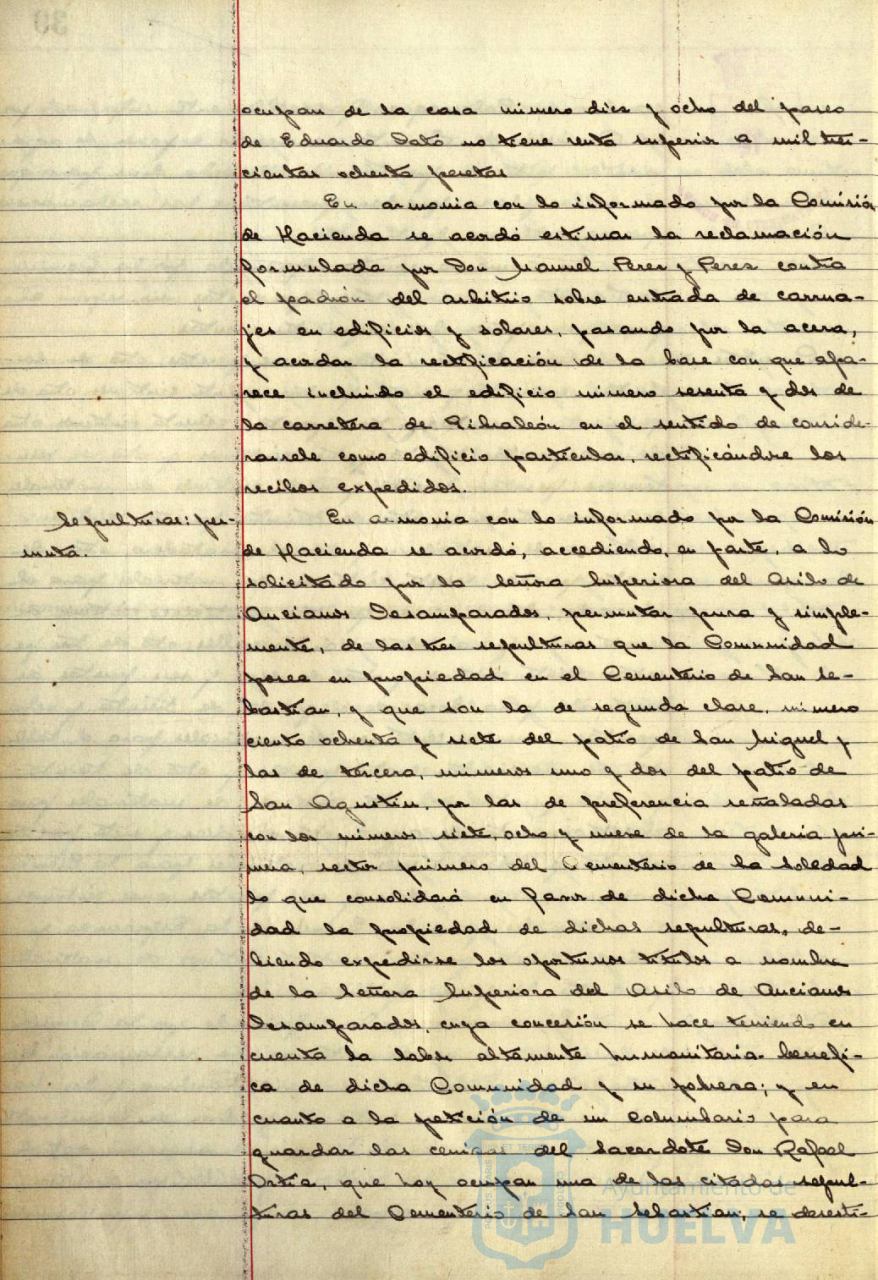 ocupan de la casa número diez y ocho del paseo
de Eduardo Dato no tiene renta superior a mil tres-
cientas ochenta pesetas
En armonia con lo informado por la Comisión
de Hacienda se acordó estimar la reclamación
formulada por Don Manuel Perez y Perez contra
el padrón del arbitrio sobre entrada de carrua-
jes en edificios y solares, pasando por la acera,
y acordar la rectificación de la base con que apa-
rece incluido el edificio número sesenta y dos de
la carretera de Gibraleón en el sentido de conside-
rarsele como edificio particular, rectificándose los
recibos expedidos.
Sepulturas: per-
muta.
En armonia con lo informado por la Comisión
de Hacienda se acordó, accediendo, en parte, a lo
solicitado por la Señora Superiora del Asilo de
Ancianos Desamparados, permutar pura y simple-
mente, de las tres sepulturas que la Comunidad
posee en propiedad en el Cementerio de San Se-
bastian, y que son la de segunda clase, número
ciento ochenta y siete del patio de San Miguel y
las de tercera, números uno y dos del patio de
San Agustin, por las de preferencia señaladas
con los números siete, ocho y nueve de la galeria pri-
mera, sector primero del Cementerio de la Soledad
lo que consolidará en favor de dicha Comuni-
dad la propiedad de dichas sepulturas, de-
biendo expedirse los oportunos titulos a nombre
de la Señora Superiora del Asilo de Ancianos
Desamparados, cuya concesión se hace teniendo en
cuenta la labor altamente humanitaria-benefi-
ca de dicha Comunidad y su pobreza; y en
cuanto a la petición de un columbario para
guardar las cenizas del Sacerdote Don Rafael
Ortia, que hoy ocupan una de las citadas sepul-
turas del Cementerio de San Sebastian, se deresti-
Ayuntamiento de
HUELVA